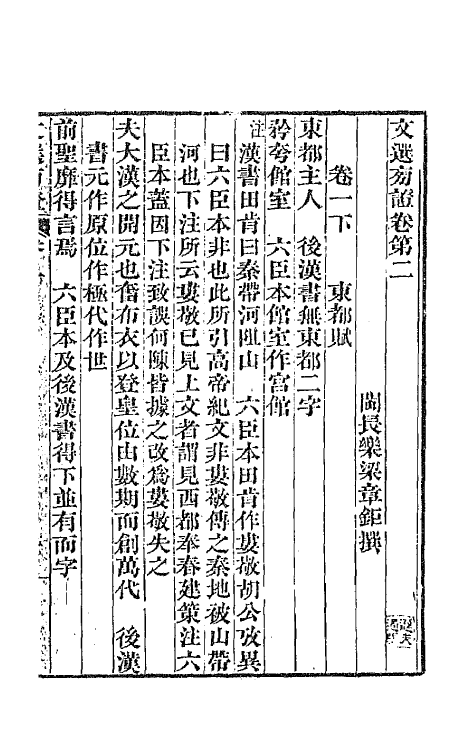 文選旁證卷第二
閩長樂梁章鉅撰
卷一下　東都賦
東都主人　後漢書無東都二字
矜夸館室　六臣本館室作宮館
注漢書田肯曰秦帶河阻山　六臣本田肯作婁敬胡公攷異
曰六臣本非也此所引高帝紀文非婁敬傳之秦地被山帶
河也下注所云婁敬已見上文者謂見西都奉春建策注六
臣本蓋因下注致誤何陳皆據之改爲婁敬失之
夫大漢之開元也奮布衣以登皇位由數期而創萬代　後漢
書元作原位作極代作世
前聖靡得言焉　六臣本及後漢書得下並有而字